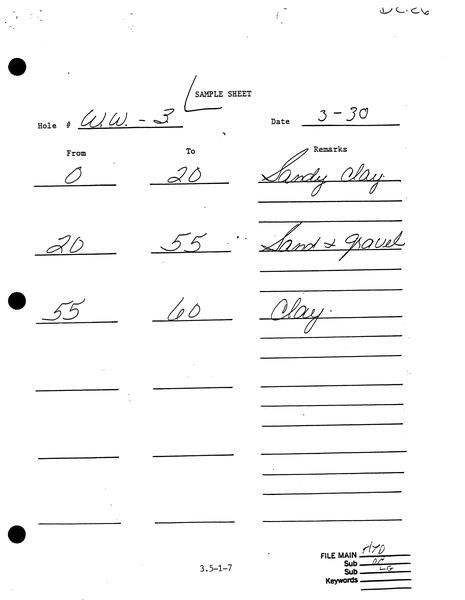 SAMPLE SHEET
Hole # W.W. - 3
Date 3-30
From To Remarks
0 20 Sandy Clay
20 55 Sand & gravel
55 60 Clay.
3.5-1-7
FILE MAIN HYD
Sub
Sub LG
Keywords